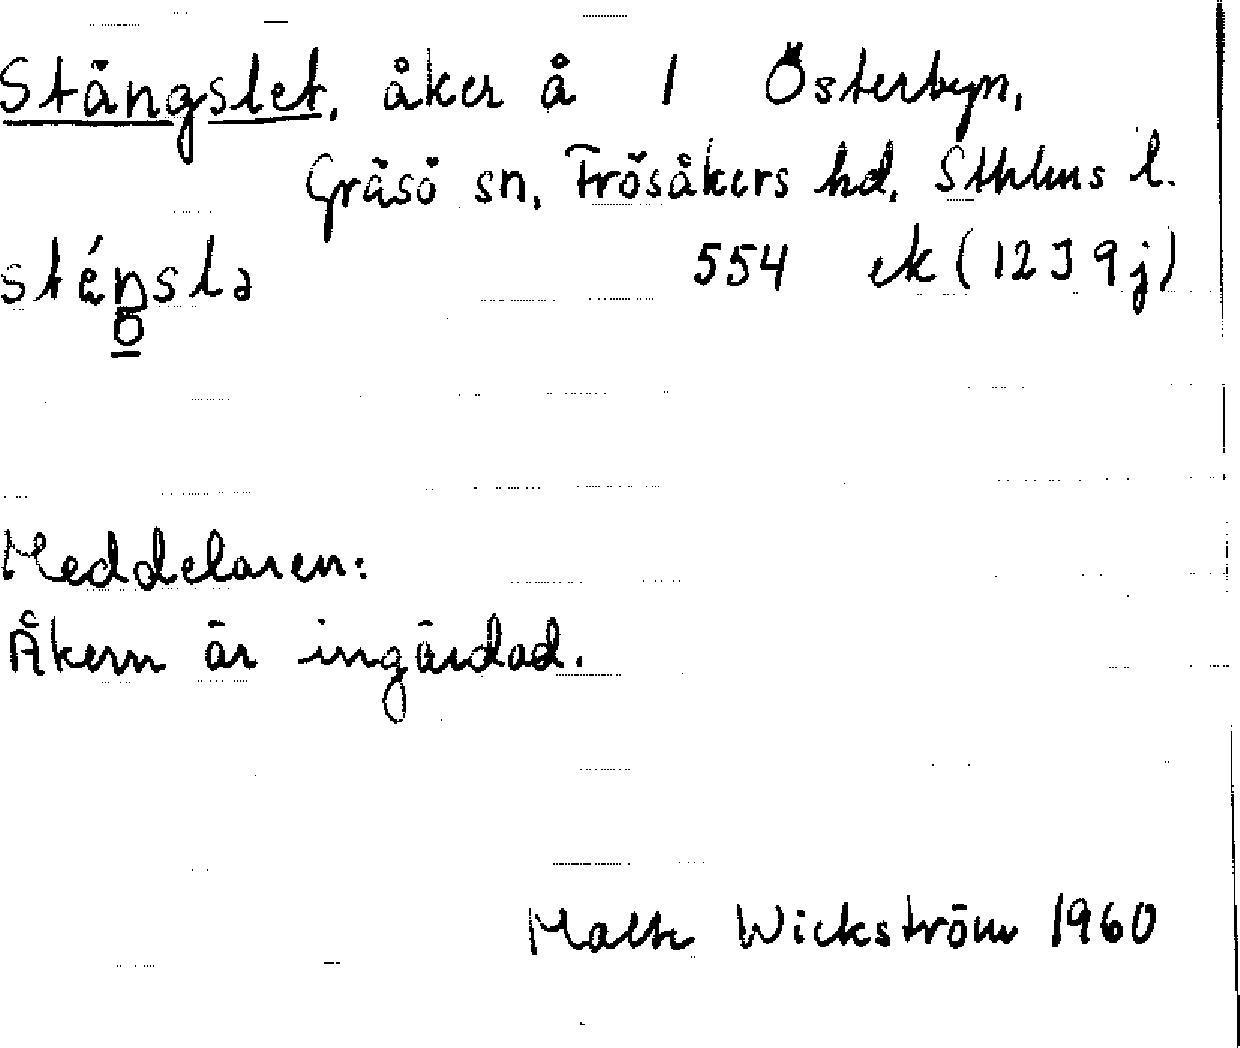 Stängslet, åker å 1 Österbyn,
Gräsö sn, Frösåkers hd, Sthlms l.
sténsla 554 ek (12 I 9 j)
Meddelaren:
Åkern är ingärdad.
Malte Wickström 1960